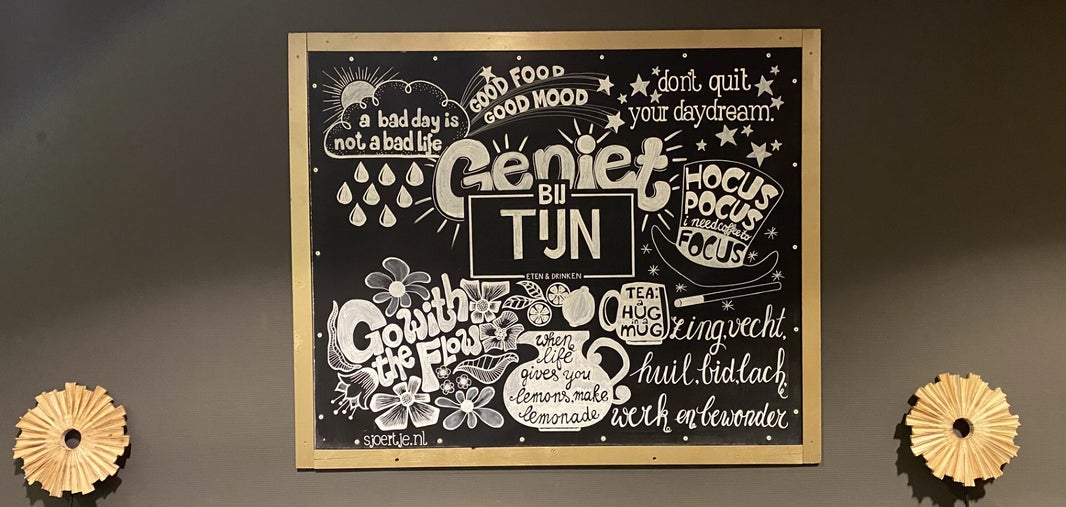 a bad day is
not a bad life
GOOD FOOD
GOOD MOOD
don't quit
your daydream.
Geniet
BIJ
TIJN
ETEN & DRINKEN
HOCUS
POCUS
i need coffee to
FOCUS
Go with
the Flow
TEA:
a
HUG
in a
MUG
when
life
gives you
lemons, make
lemonade
zing, vecht,
huil, bid, lach,
werk en bewonder
sjoertje.nl